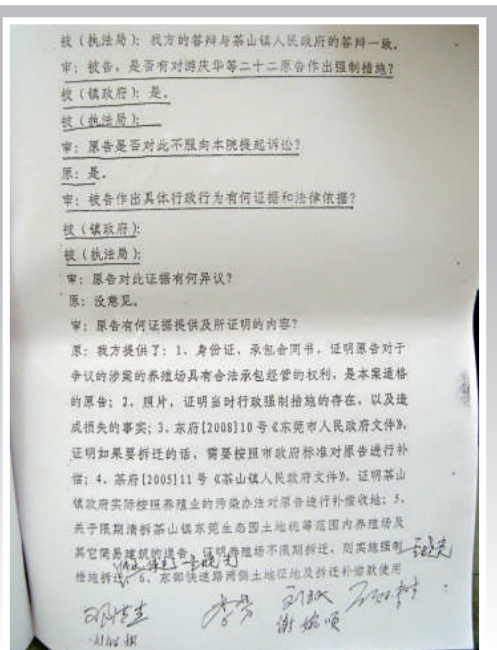 被（执法局）：我方的答辩与茶山镇人民政府的答辩一致。
审：被告，是否有对游庆华等二十二原告作出强制措施？
被（镇政府）：是。
被（执法局）：
审：原告是否对此不服向本院提起诉讼？
原：是。
审：被告作出具体行政行为有何证据和法律依据？
被（镇政府）：
被（执法局）：
审：原告对此证据有何异议？
原：没意见。
审：原告有何证据提供及所证明的内容？
原：我方提供了：1、身份证，承包合同书，证明原告对于
争议的涉案的养殖场具有合法承包经营的权利，是本案适格
的原告；2、照片，证明当时行政强制措施的存在，以及造
成损失的事实；3、东府[2008]10号《东莞市人民政府文件》，
证明如果要拆迁的话，需要按照市政府标准对原告进行补
偿；4、茶府[2005]11号《茶山镇人民政府文件》。证明茶山
镇政府实际按照养殖业的污染办法对原告进行补偿收地；5、
关于限期清拆茶山镇东莞生态园土地统筹范围内养殖场及
其它简易建筑的通告，证明养殖场不限期拆迁，则实施强制
措施拆迁；6、东部快速路两侧土地征地及拆迁补偿款使用